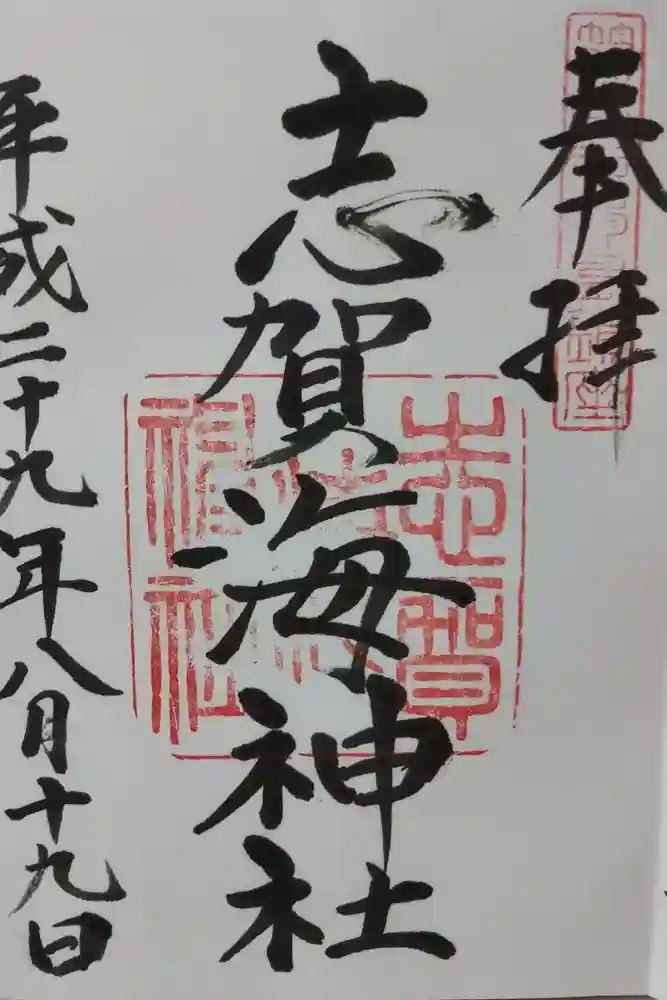 奉拝
志賀海神社
平成二十九年八月十九日
志賀